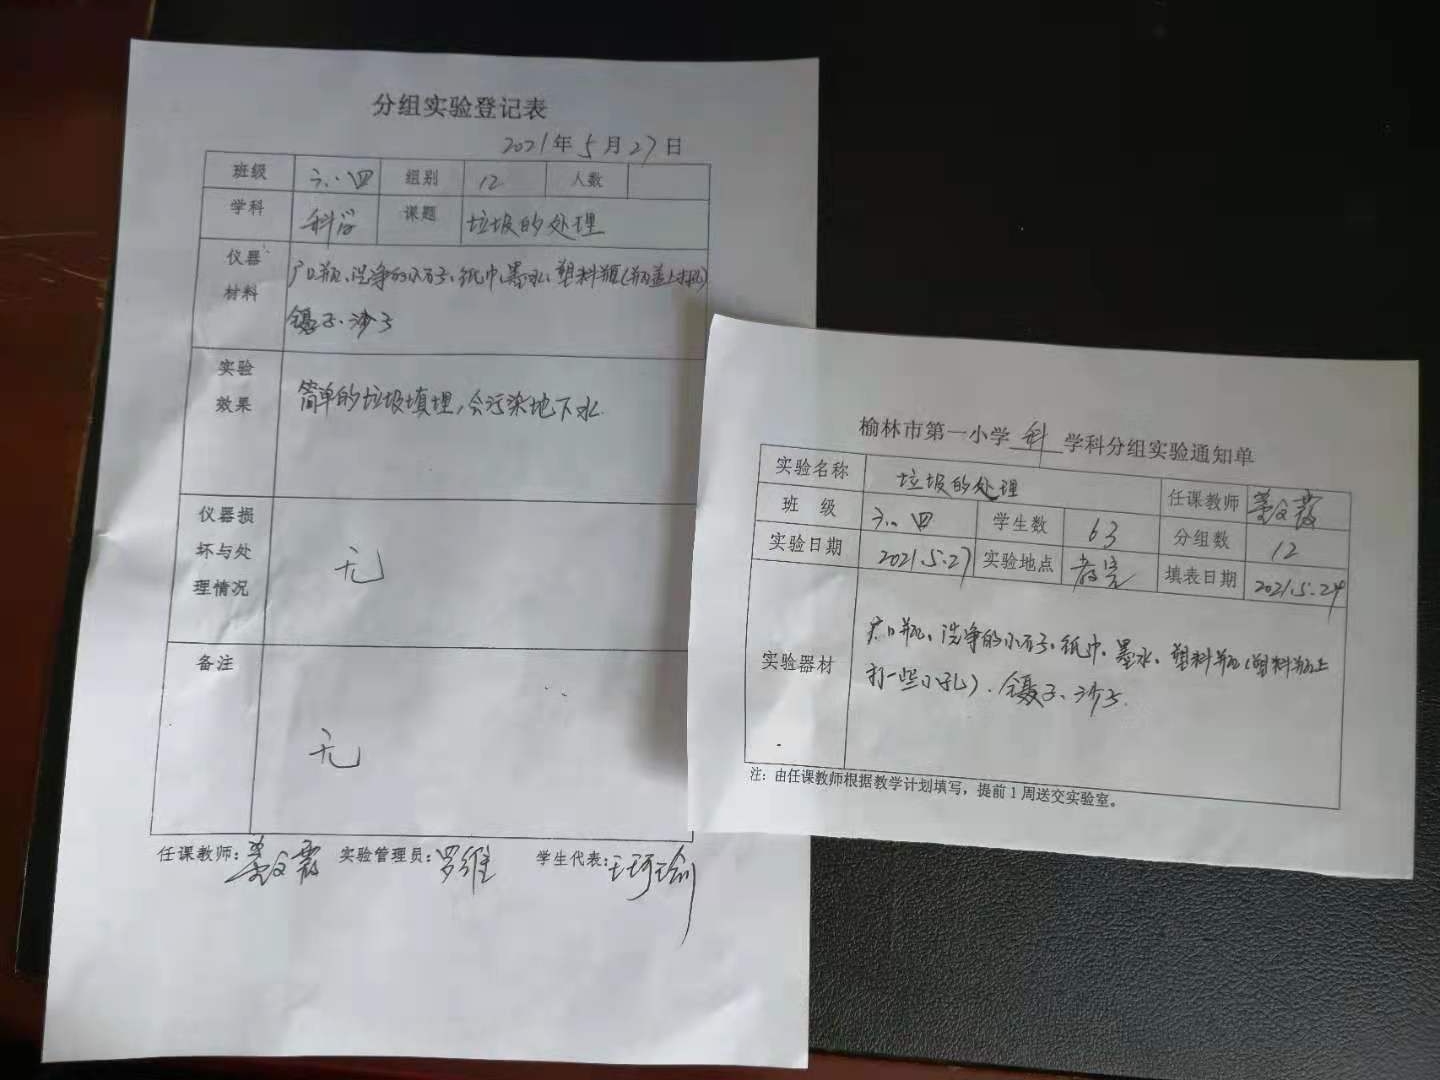 分组实验登记表
2021年5月27日
班级 六、四 组别 12 人数
学科 科学 课题 垃圾的处理
仪器材料 广口瓶、洗净的小石子、纸巾、墨水、塑料瓶(瓶盖上扎孔)
镊子、沙子
实验效果 简单的垃圾填埋,会污染地下水
仪器损坏与处理情况 无
备注 无
任课教师: 实验管理员:罗维 学生代表:王珂瑜
榆林市第一小学 科 学科分组实验通知单
实验名称 垃圾的处理 任课教师
班 级 六、四 学生数 63 分组数 12
实验日期 2021.5.27 实验地点 教室 填表日期 2021.5.24
实验器材 广口瓶、洗净的小石子、纸巾、墨水、塑料瓶(塑料瓶上
打一些小孔)、镊子、沙子.
注:由任课教师根据教学计划填写,提前1周送交实验室。